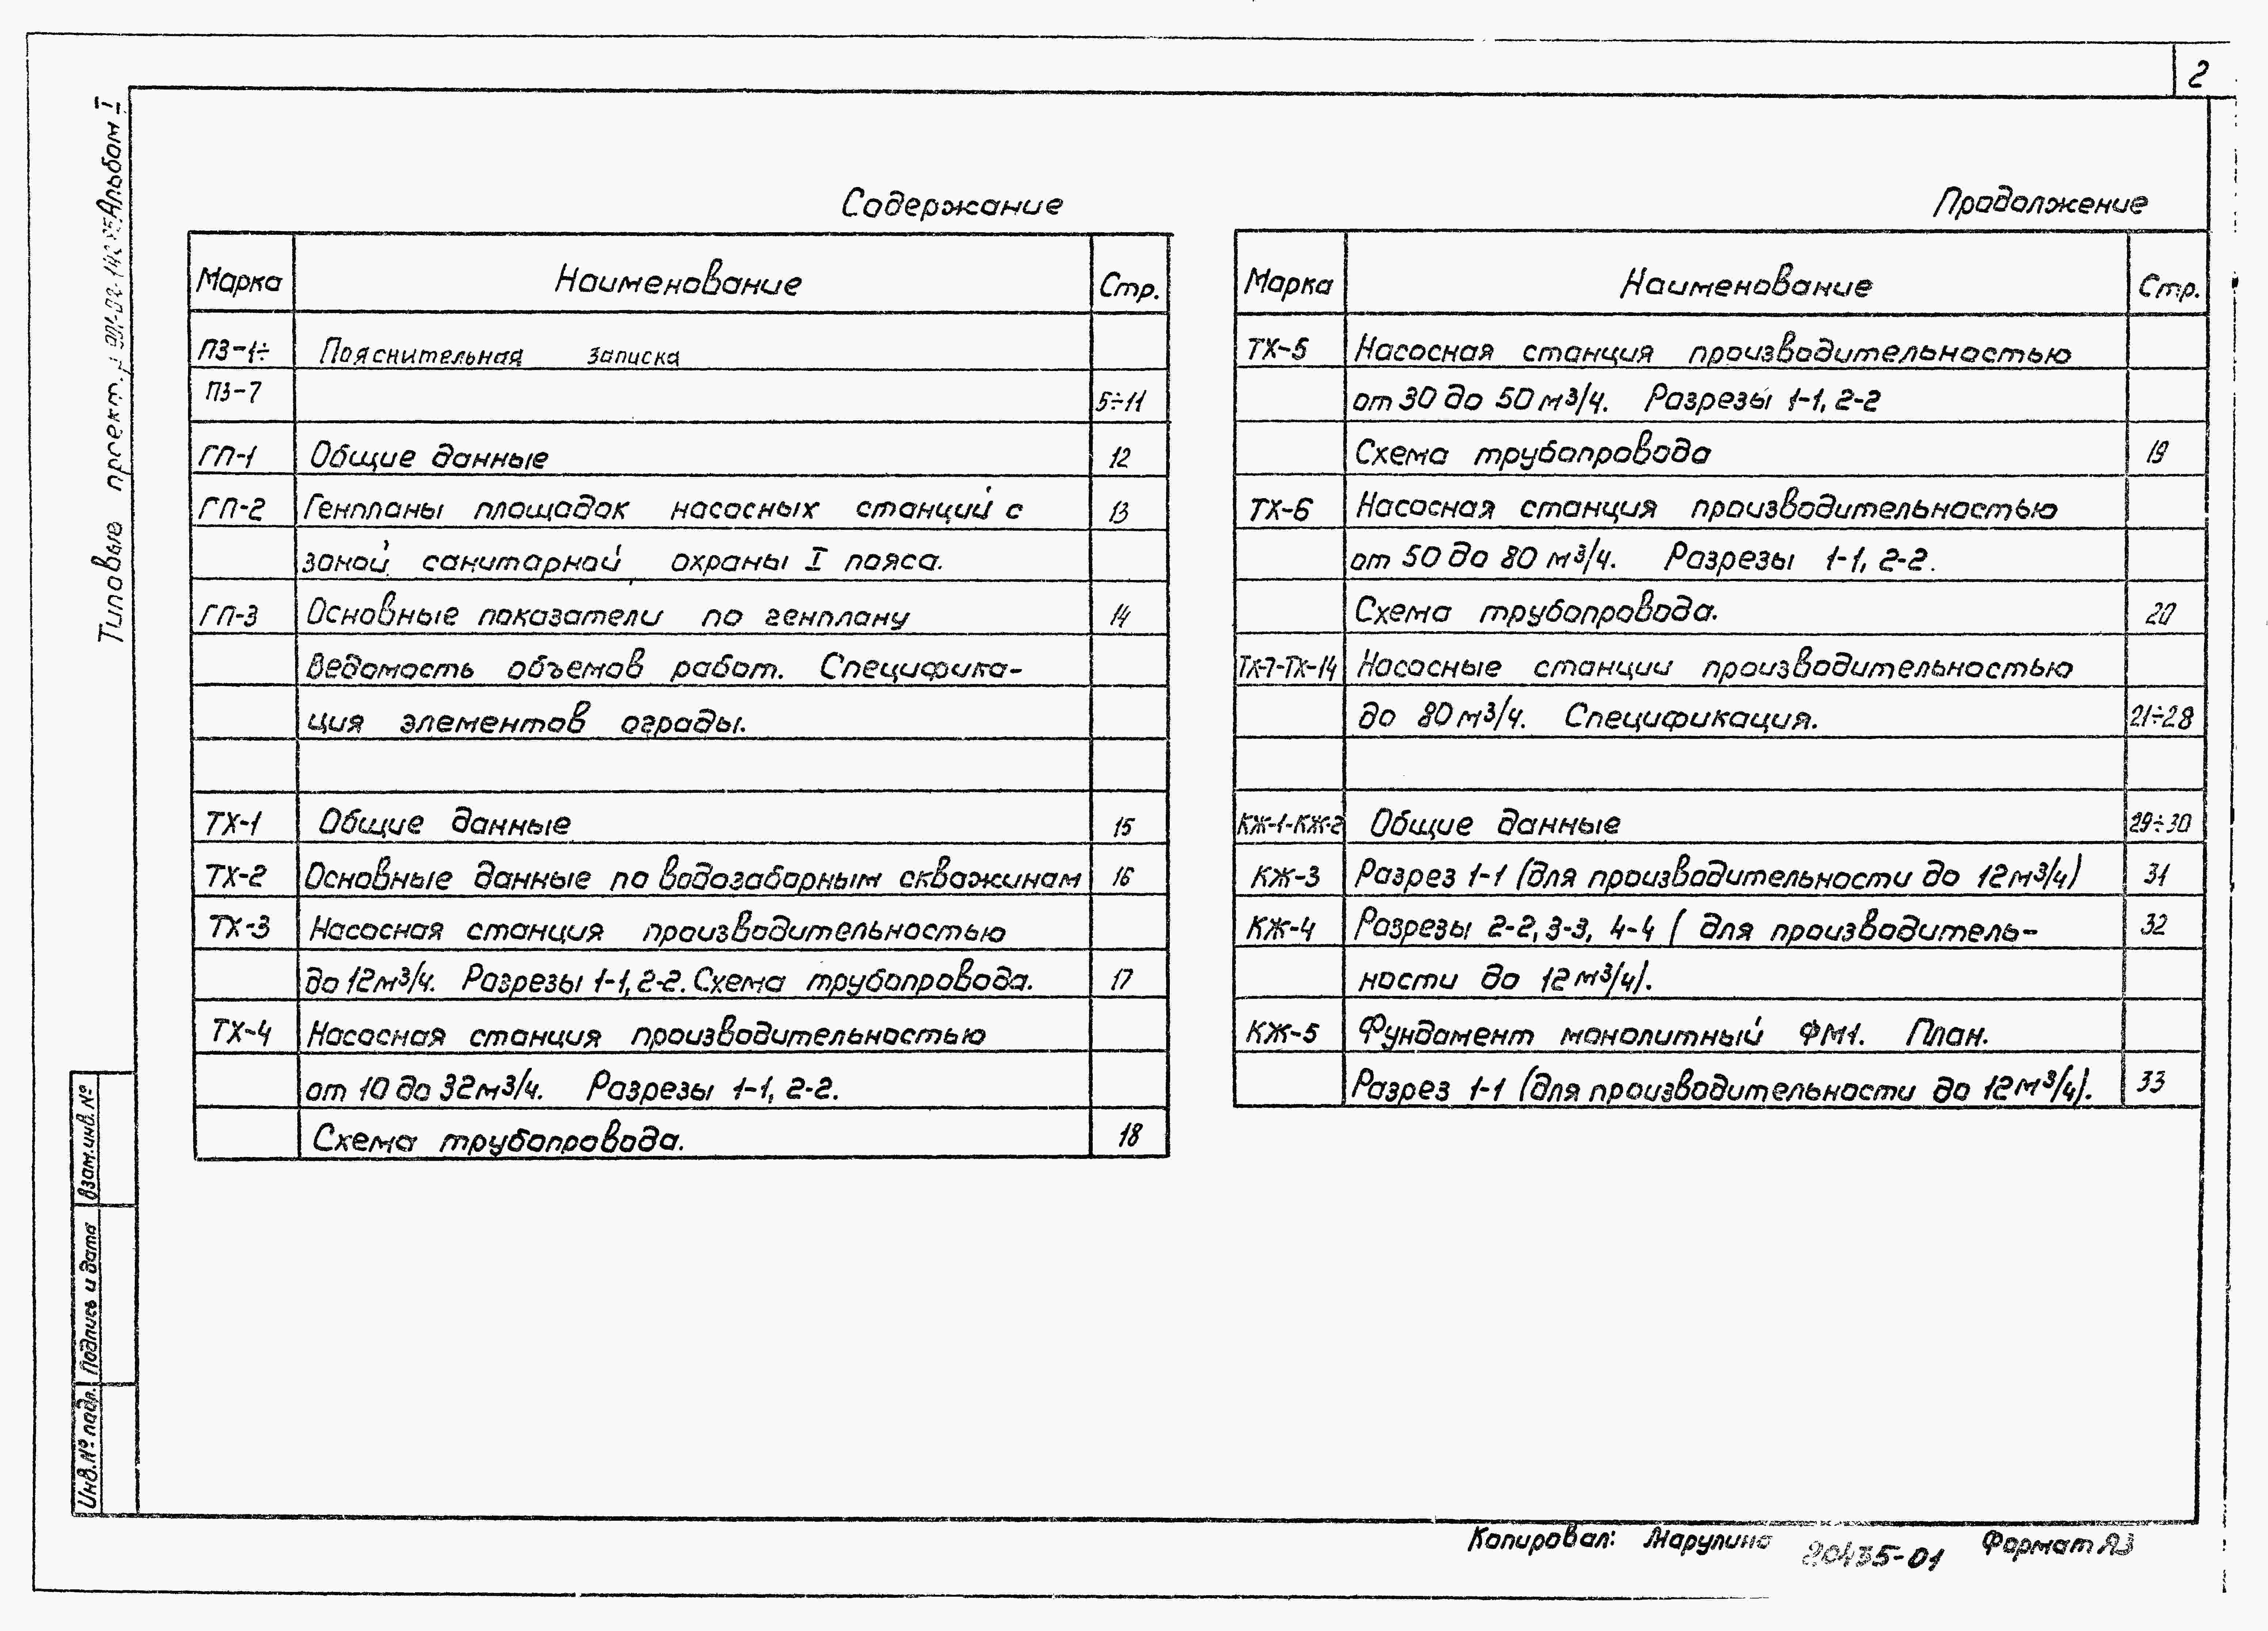 2
Типовые проект. 901-02-140.85 Альбом I
Содержание
Марка Наименование Стр.
ПЗ-1÷ Пояснительная записка
ПЗ-7 5÷11
ГП-1 Общие данные 12
ГП-2 Генпланы площадок насосных станций с 13
зоной санитарной охраны I пояса.
ГП-3 Основные показатели по генплану 14
Ведомость объемов работ. Специфика-
ция элементов ограды.
ТХ-1 Общие данные 15
ТХ-2 Основные данные по водозаборным скважинам 16
ТХ-3 Насосная станция производительностью
до 12 м³/ч. Разрезы 1-1, 2-2. Схема трубопровода. 17
ТХ-4 Насосная станция производительностью
от 10 до 32 м³/ч. Разрезы 1-1, 2-2.
Схема трубопровода. 18
Продолжение
Марка Наименование Стр.
ТХ-5 Насосная станция производительностью
от 30 до 50 м³/ч. Разрезы 1-1, 2-2
Схема трубопровода 19
ТХ-6 Насосная станция производительностью
от 50 до 80 м³/ч. Разрезы 1-1, 2-2.
Схема трубопровода. 20
ТХ-7-ТХ-14 Насосные станции производительностью
до 80 м³/ч. Спецификация. 21÷28
КЖ-1-КЖ-2 Общие данные 29÷30
КЖ-3 Разрез 1-1 (для производительности до 12 м³/ч) 31
КЖ-4 Разрезы 2-2, 3-3, 4-4 (для производитель- 32
ности до 12 м³/ч).
КЖ-5 Фундамент монолитный ФМ1. План.
Разрез 1-1 (для производительности до 12 м³/ч). 33
Взам.инв.№
Подпись и дата
Инв.№ подл.
Копировал: Марулина 20435-01 Формат А3